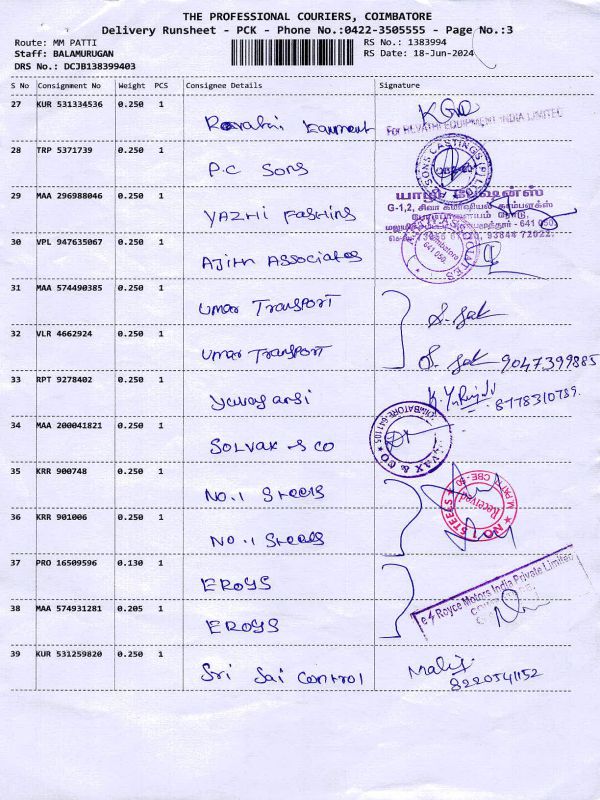 THE PROFESSIONAL COURIERS, COIMBATORE
Delivery Runsheet - PCK - Phone No.:0422-3505555 - Page No.:3
Route: MM PATTI
Staff: BALAMURUGAN
DRS No.: DCJB138399403
RS No.: 1383994
RS Date: 18-Jun-2024
S No Consignment No Weight PCS Consignee Details Signature
27 KUR 531334536 0.250 1
For REVATHI EQUIPMENT INDIA LIMITED
28 TRP 5371739 0.250 1
P.C Sons
29 MAA 296988046 0.250 1
YAZHI FASHINS
யாழி ஃபேஷன்ஸ்
30 VPL 947635067 0.250 1
AJITH ASSOCIATES
31 MAA 574490385 0.250 1
UMAR TRANSPORT
32 VLR 4662924 0.250 1
UMAR TRANSPORT
9047399885
33 RPT 9278402 0.250 1
8778310789.
34 MAA 200041821 0.250 1
SOLVAX & CO
35 KRR 900748 0.250 1
NO.1 Steels
36 KRR 901006 0.250 1
NO.1 Steels
Received
37 PRO 16509596 0.130 1
EROYS
e4 Royce Motors India Private Limited
38 MAA 574931281 0.205 1
EROYS
39 KUR 531259820 0.250 1
Sri Sai Control
8220541152